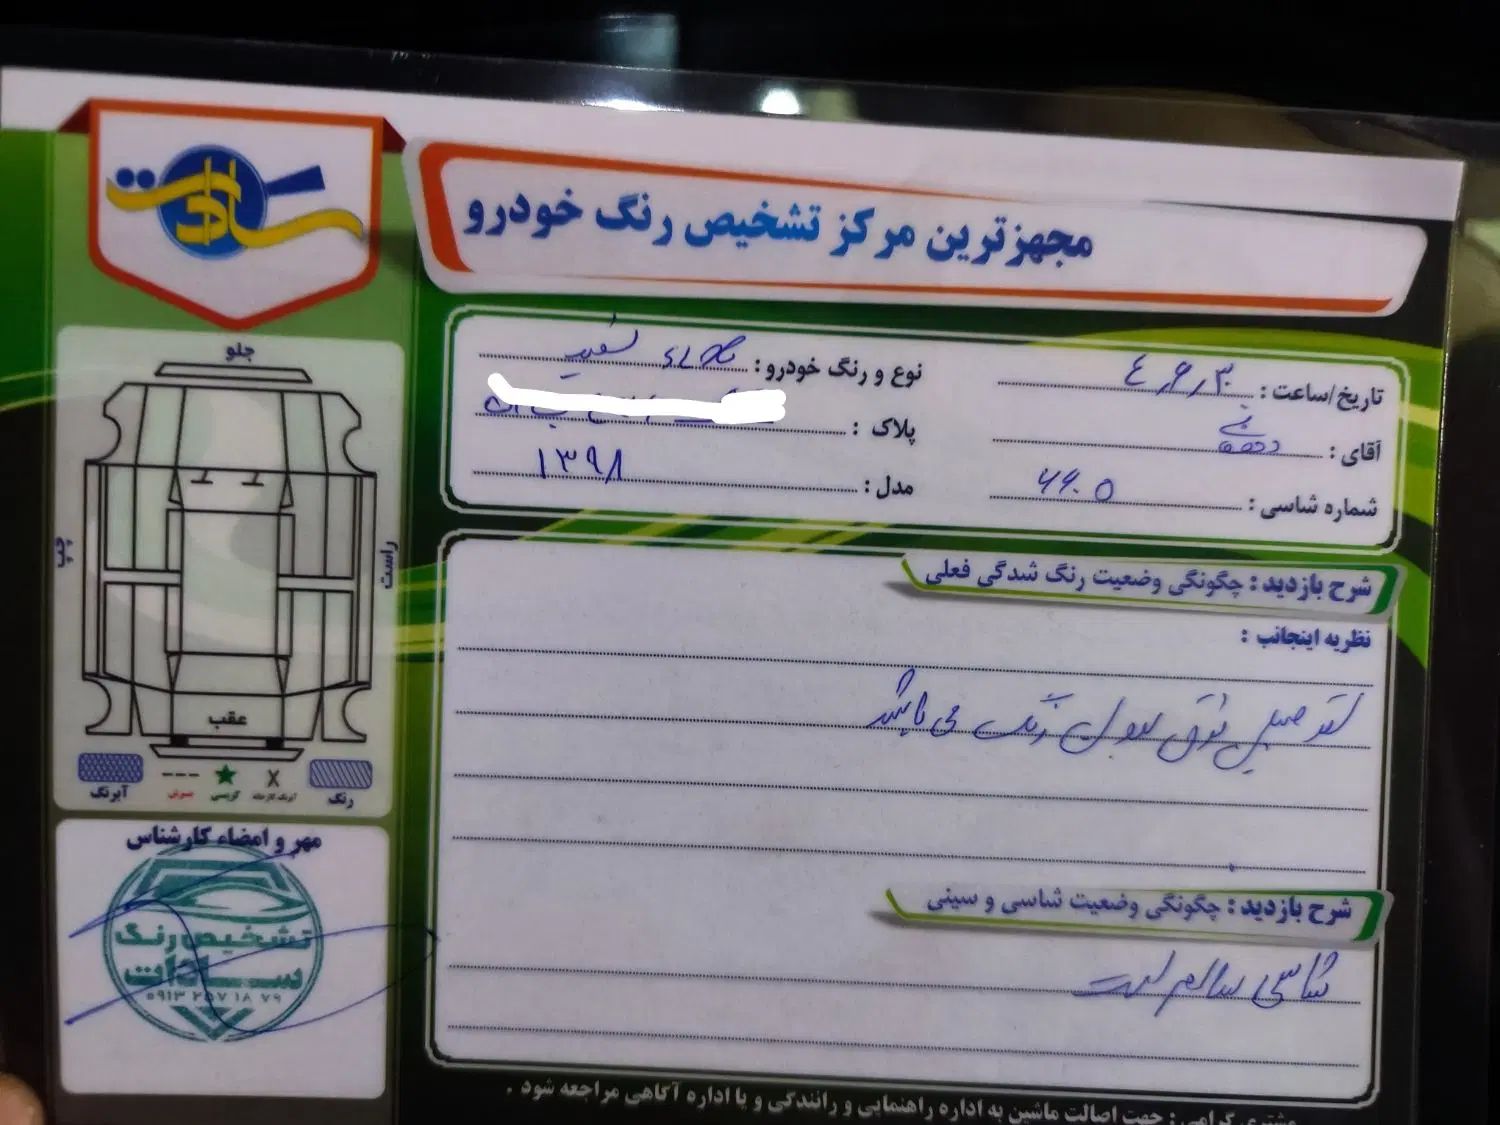 سادات
مجهزترین مرکز تشخیص رنگ خودرو
تاریخ/ساعت :
نوع و رنگ خودرو : سفید
آقای :
پلاک :
شماره شاسی :
مدل : ۱۳۹۸
شرح بازدید : چگونگی وضعیت رنگ شدگی فعلی
نظریه اینجانب :
اتومبیل فوق بدون رنگ می باشد
شرح بازدید : چگونگی وضعیت شاسی و سینی
شاسی سالم است
مشتری گرامی : جهت اصالت ماشین به اداره راهنمایی و رانندگی و یا اداره آگاهی مراجعه شود .
جلو
چپ
راست
عقب
رنگ
گریسی
آبرنگ
مهر و امضاء کارشناس
تشخیص رنگ
سادات
۰۹۱۳ ۲۵۷ ۱۸ ۷۹